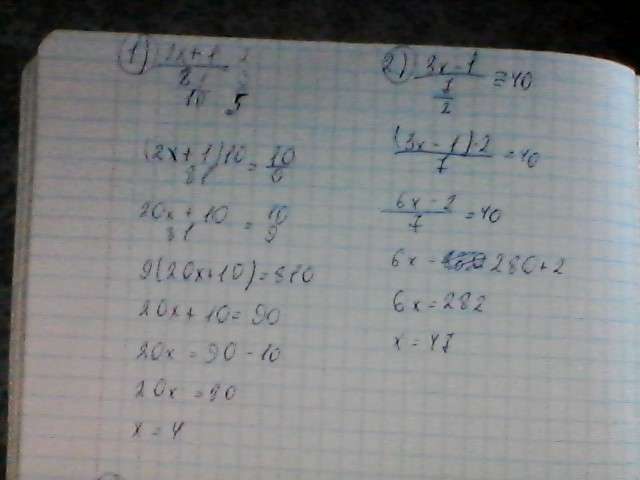 1)
(2x+1)10/81 = 10/9
20x+10/81 = 10/9
9(20x+10)=810
20x+10=90
20x=90-10
20x=80
x=4
2) 3x-1/7/2 = 40
(3x-1)·2/7 = 40
6x-2/7 = 40
6x = 280+2
6x=282
x=47